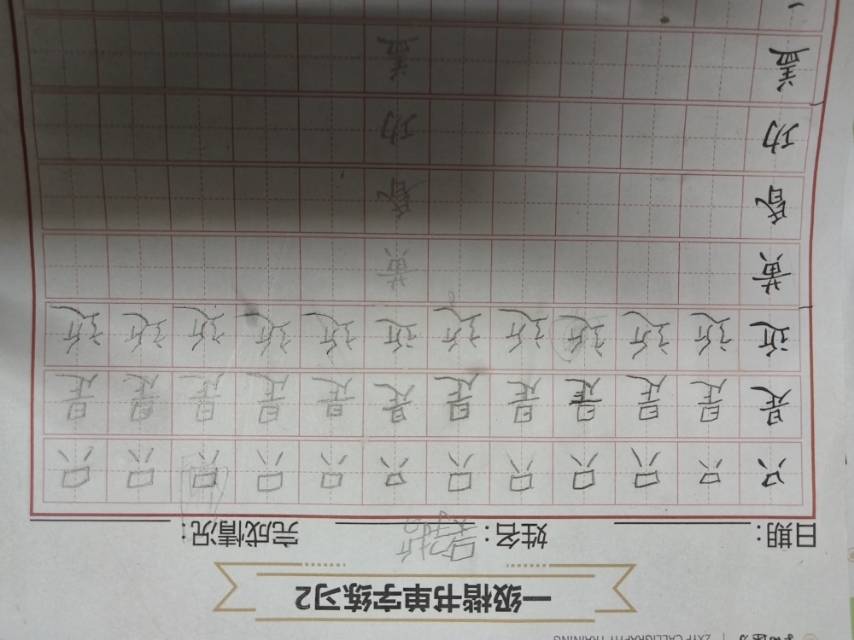 CALLIGRAPHY TRAINING
一级楷书单字练习2
日期： 姓名： 完成情况：
只 只 只 只 只 只 只 只 只 只 只 只
是 是 是 是 是 是 是 是 是 是 是 是
近 近 近 近 近 近 近 近 近 近 近 近
黄 黄
昏 昏
功 功
盖 盖